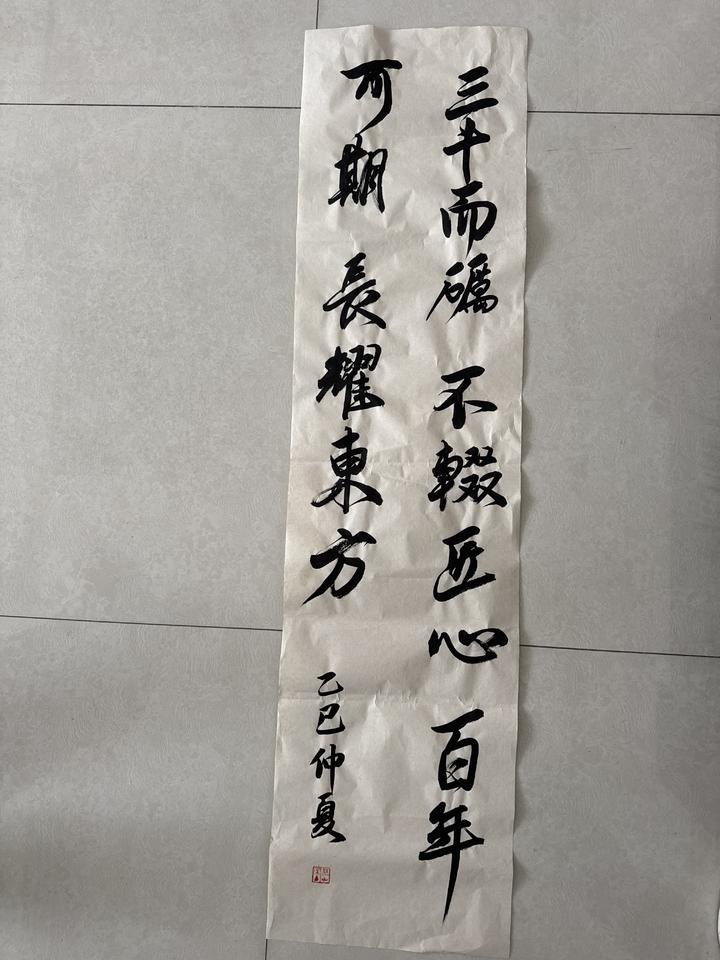 三十而礪 不輟匠心 百年
可期 長耀東方
乙巳仲夏